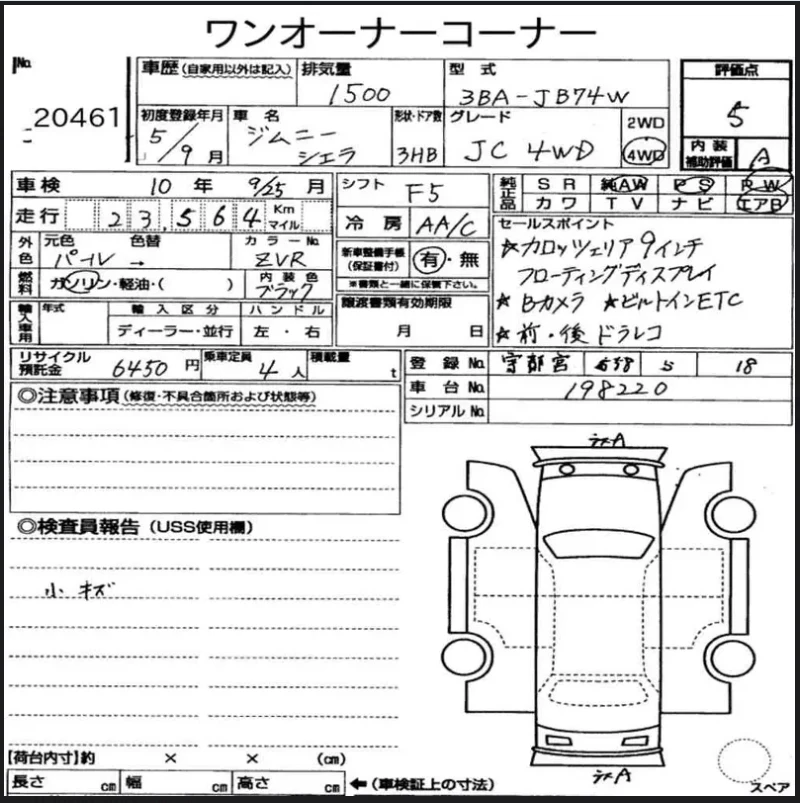 ワンオーナーコーナー
No. 20461
車歴（自家用以外は記入）
排気量 1500
型式 3BA-JB74W
評価点 5
初度登録年月 5/9月
車名 ジムニー シエラ
形状・ドア数 3HB
グレード JC 4WD
2WD
4WD
内装補助評価 A
車検 10年 9/25月
シフト F5
純正品 SR 純AW PS PW
カワ TV ナビ エアB
走行 23,564 Km マイル
冷房 AA/C
セールスポイント
★カロッツェリア9インチ
フローティングディスプレイ
★Bカメラ ★ビルトインETC
★前・後ドラレコ
外色 元色 パール → 色替
カラーNo. ZVR
新車整備手帳（保証書付） 有・無
※書類と一緒に保管下さい。
燃料 ガソリン・軽油・( )
内装色 ブラック
譲渡書類有効期限
月 日
輸入車用 年式 輸入区分 ハンドル
ディーラー・並行 左・右
リサイクル預託金 6450円
乗車定員 4人
積載量 t
登録No. 宇都宮 S 18
車台No. 198220
シリアルNo.
◎注意事項（修復・不具合箇所および状態等）
◎検査員報告（USS使用欄）
小キズ
【荷台内寸】約 × × (cm)
長さ cm 幅 cm 高さ cm ←（車検証上の寸法）
スペア